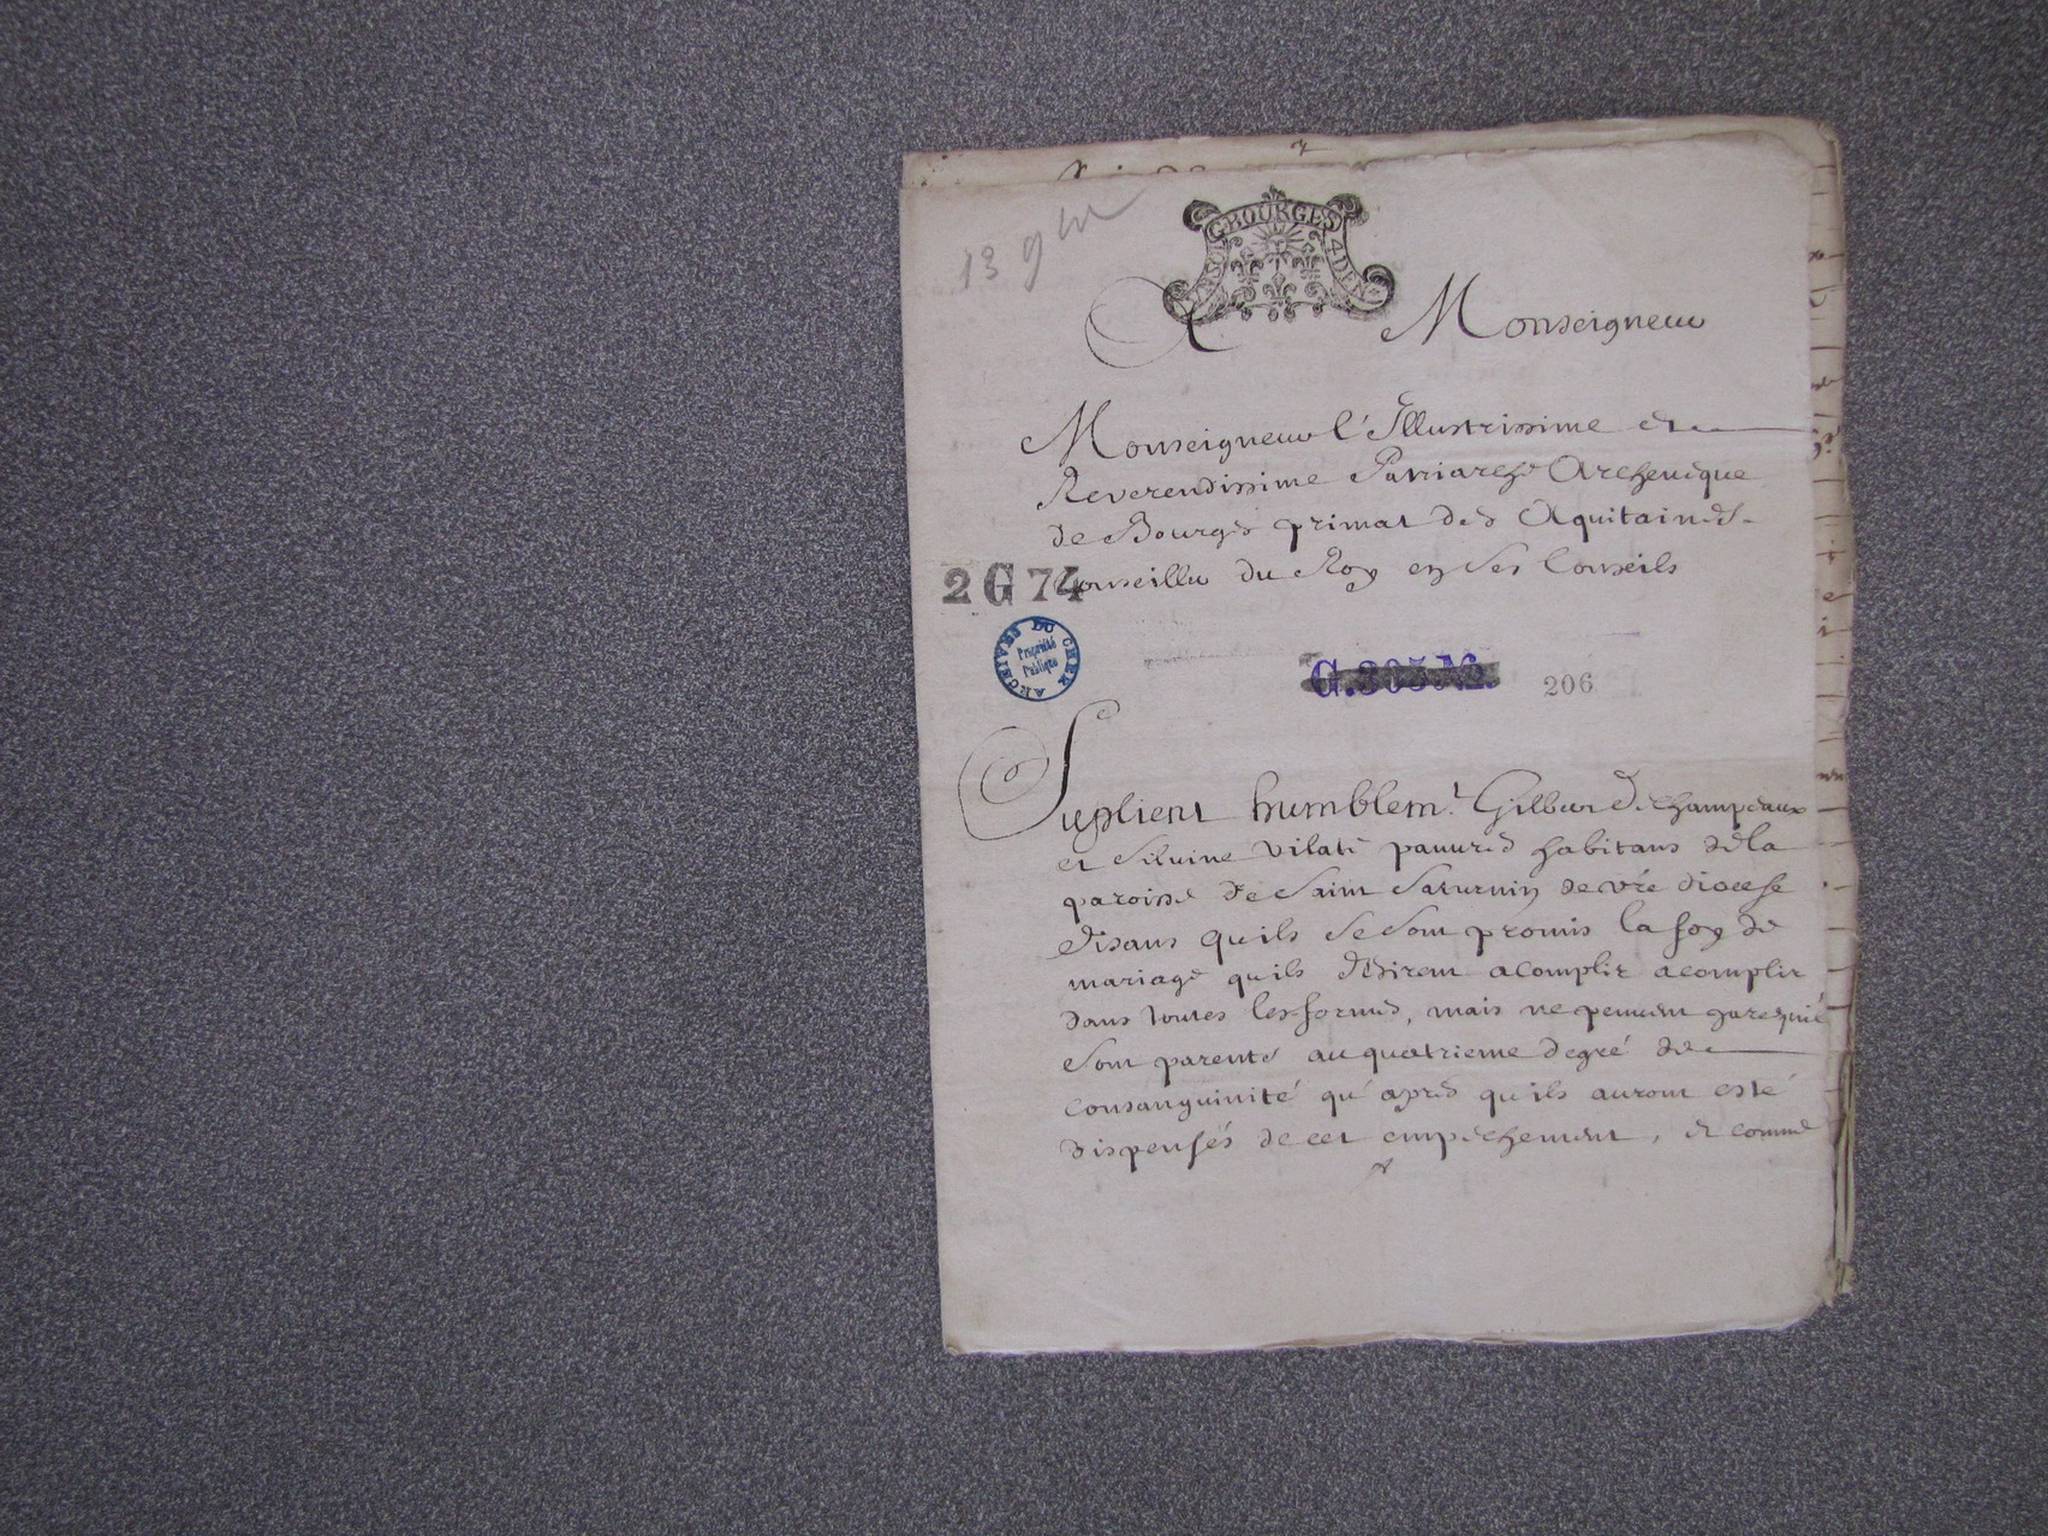 13 9bre
G BOURGES
4 DEN
A Monseigneur
Monseigneur l'Illustrissime et
Reverendissime Patriarche Archeveque
de Bourges primat des Aquitaines
2 G 74
Conseiller du Roy en ses Conseils
ARCHIVES DU CHER
Propriété
Publique
G. 305 No. 206
Suplient humblemt. Gilber Dechampeaux
et Silvine vilate pauvres habitans de la
paroisse de Saint Saturnin de vre diocese
disans qu'ils se sont promis la foy de
mariage qu'ils desirent acomplir acomplir
dans toutes les formes, mais ne peuvent
sont parents au quatrieme degré de
consanguinité qu'apres qu'ils auront esté
dispensés de cet empechement, et comme